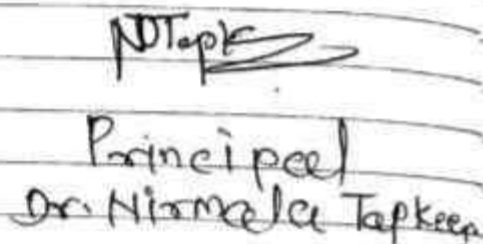 NDTapk
Principal
Dr. Nirmala Tapkeer